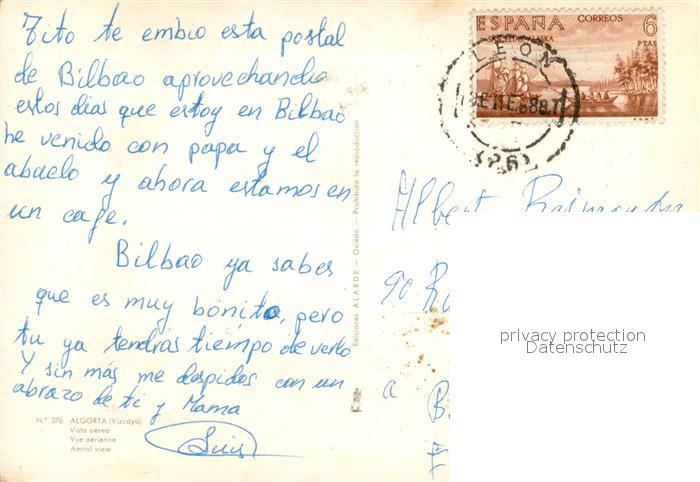 Tito te embio esta postal
de Bilbao aprovechando
estos dias que estoy en Bilbao
he venido con papa y el
abuelo y ahora estamos en
un cafe.
Bilbao ya sabes
que es muy bonito, pero
tu ya tendras tiempo de verlo
Y sin más me despido con un
abrazo de ti y Mama
Luis
N.º 376 ALGORTA (Vizcaya)
Vista aérea
Vue aérienne
Aerial view
Ediciones ALARDE — Oviedo — Prohibida la reproducción
ESPAÑA CORREOS 6
PTAS
LEON
Albert
90
a
privacy protection
Datenschutz